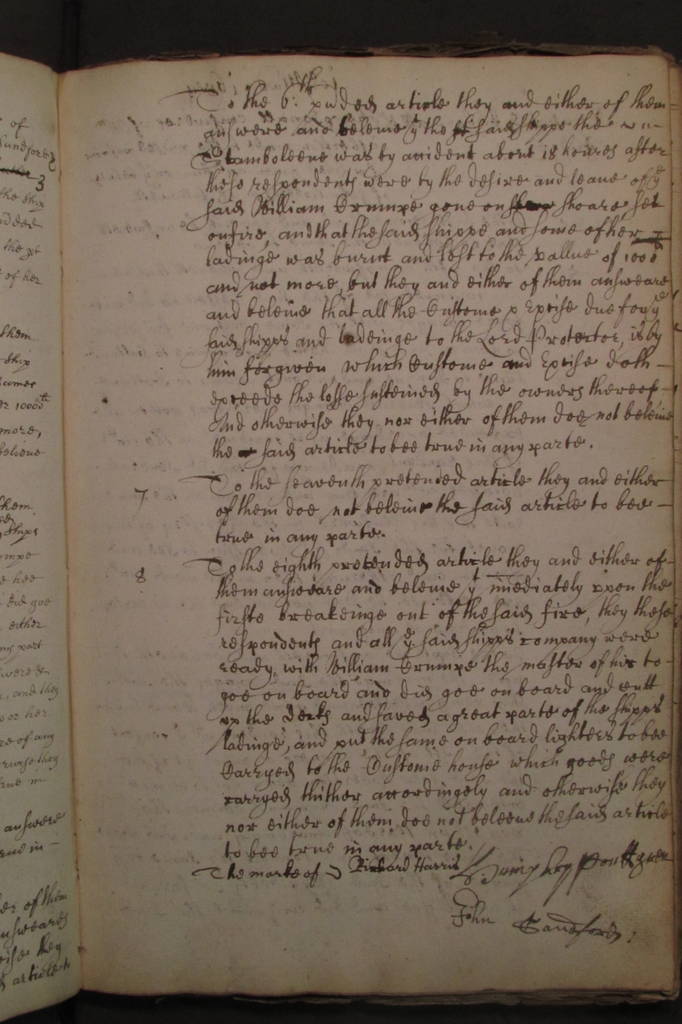 To the 6th p~nded article they and either of them
answere and beleive yt the said shippe the
Stamboleene was by accident about 18 houres after
these respondents were by the desire and leave of ye
said William Crumpe gone on shoare set
on fire, and that the said shippe and some of her
ladinge was burnt and lost to the vallue of 1000li
and not more, but they and either of them answeare
and beleive that all the Custome & Excise due for ye
said shipps and ladeinge to the Lord Protector, is by
him forgiven which Custome and Excise doth
exceede the losse susteined by the owners thereof
And otherwise they nor either of them doe not beleive
the said article to bee true in any parte.
7 To the seaventh pretended article they and either
of them doe not beleive the said article to bee
true in any parte.
8 To the eighth pretended article they and either of
them answeare and beleive yt imediately upon the
firste breakeinge out of the said fire, they these
respondents and all ye said shipps company were
ready with William Crumpe the master of her to
goe on board and did goe on board and cutt
up the decks and saved a great parte of the shipps
ladinge, and put the same on board lighters to bee
Carryed to the Custome house which goods were
carryed thither accordingely and otherwise they
nor either of them doe not beleeve the said article
to bee true in any parte.
The marke of Richard Harris
John Sandford
of
Sandford
3
the ship
of her
them
ship
10000
more,
beleive
them
ships
hee
doe
either
any part
were
and they
or her
of any
they
true in
answere
of them
answeare
they
article